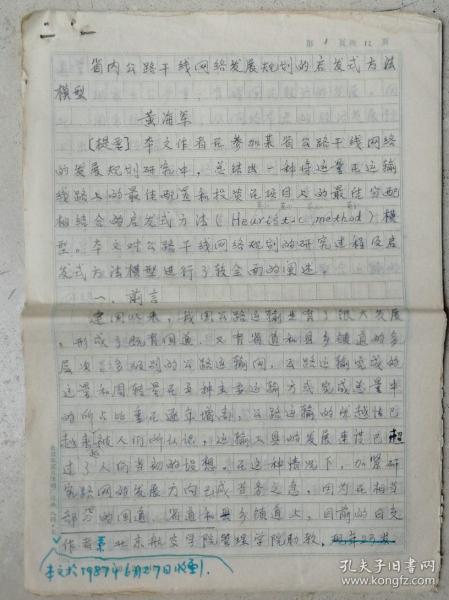 第 1 页共 12 页
省内公路干线网络发展规划的启发式方法
模型
黄海军
[提要] 本文作者在参加某省公路干线网络
的发展规划研究中，总结出一种将运量在运输
线路上的最佳配置和投资在项目上的最佳分配
相结合的启发式方法(Heuristic method)模
型。本文对公路干线网络规划的研究过程及启
发式方法模型进行了较全面的阐述。
一、前言
建国以来，我国公路运输业有了很大发展
，形成了既有国道，又有省道和县乡镇道的多
层次、多级别的公路运输网，公路运输完成的
运量和周转量在五种主要运输方式完成总量中
的所占比重在逐年增加，公路运输的优越性已
越来被人们所认识，运输工具的发展速度已超
过了人们当初的设想。在这种情况下，加紧研
究路网的发展方向已成当务之急，因为在相当
部分的国道、省道和县乡镇道上，目前的日交
作者系北京航空学院管理学院助教。
本文于1987年6月27日收到。
孔夫子旧书网